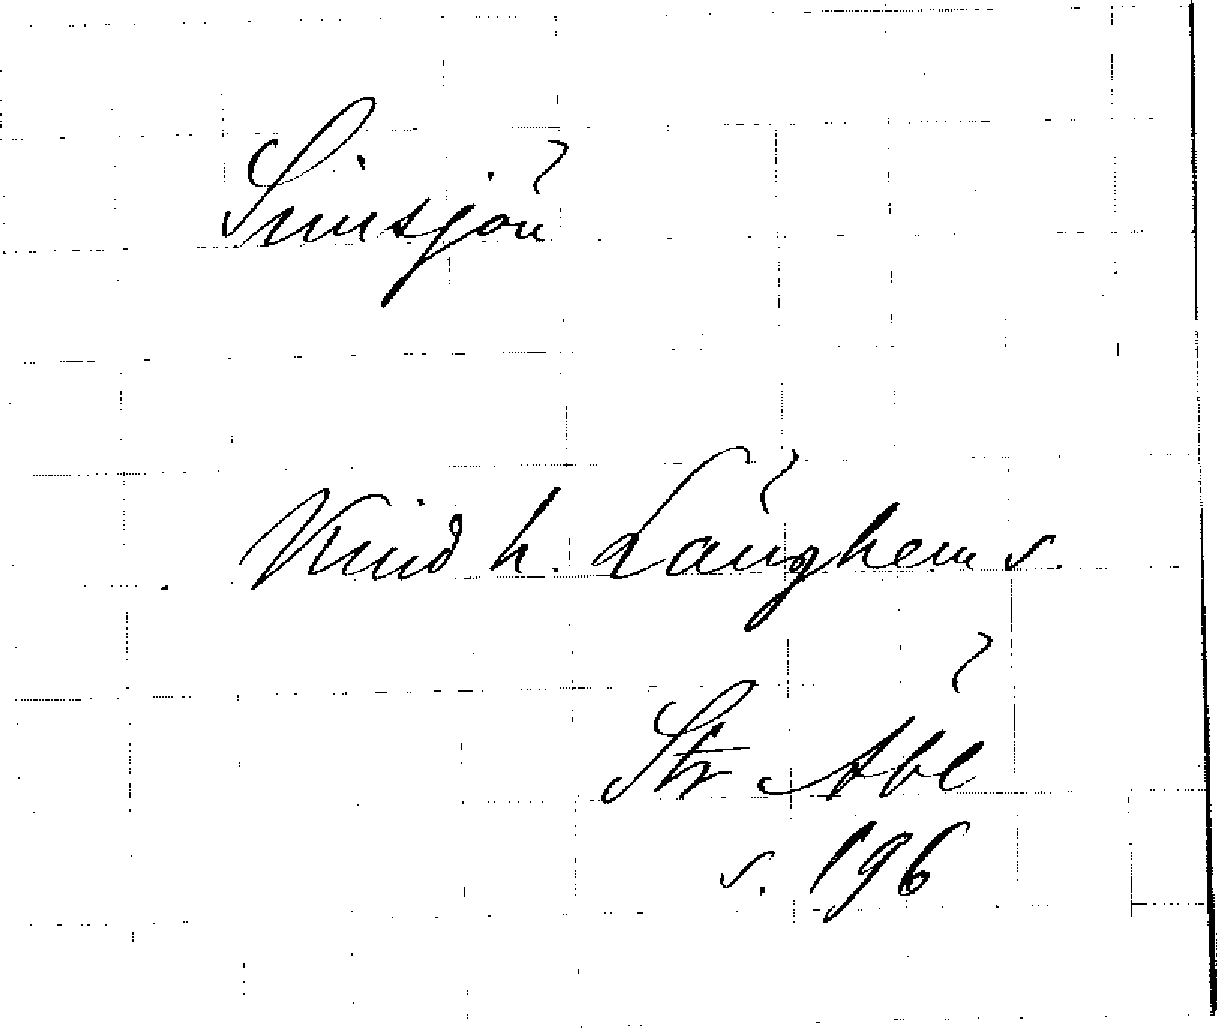 Simsjön
Kind h. Länghem s.
Str Abl
s. 196